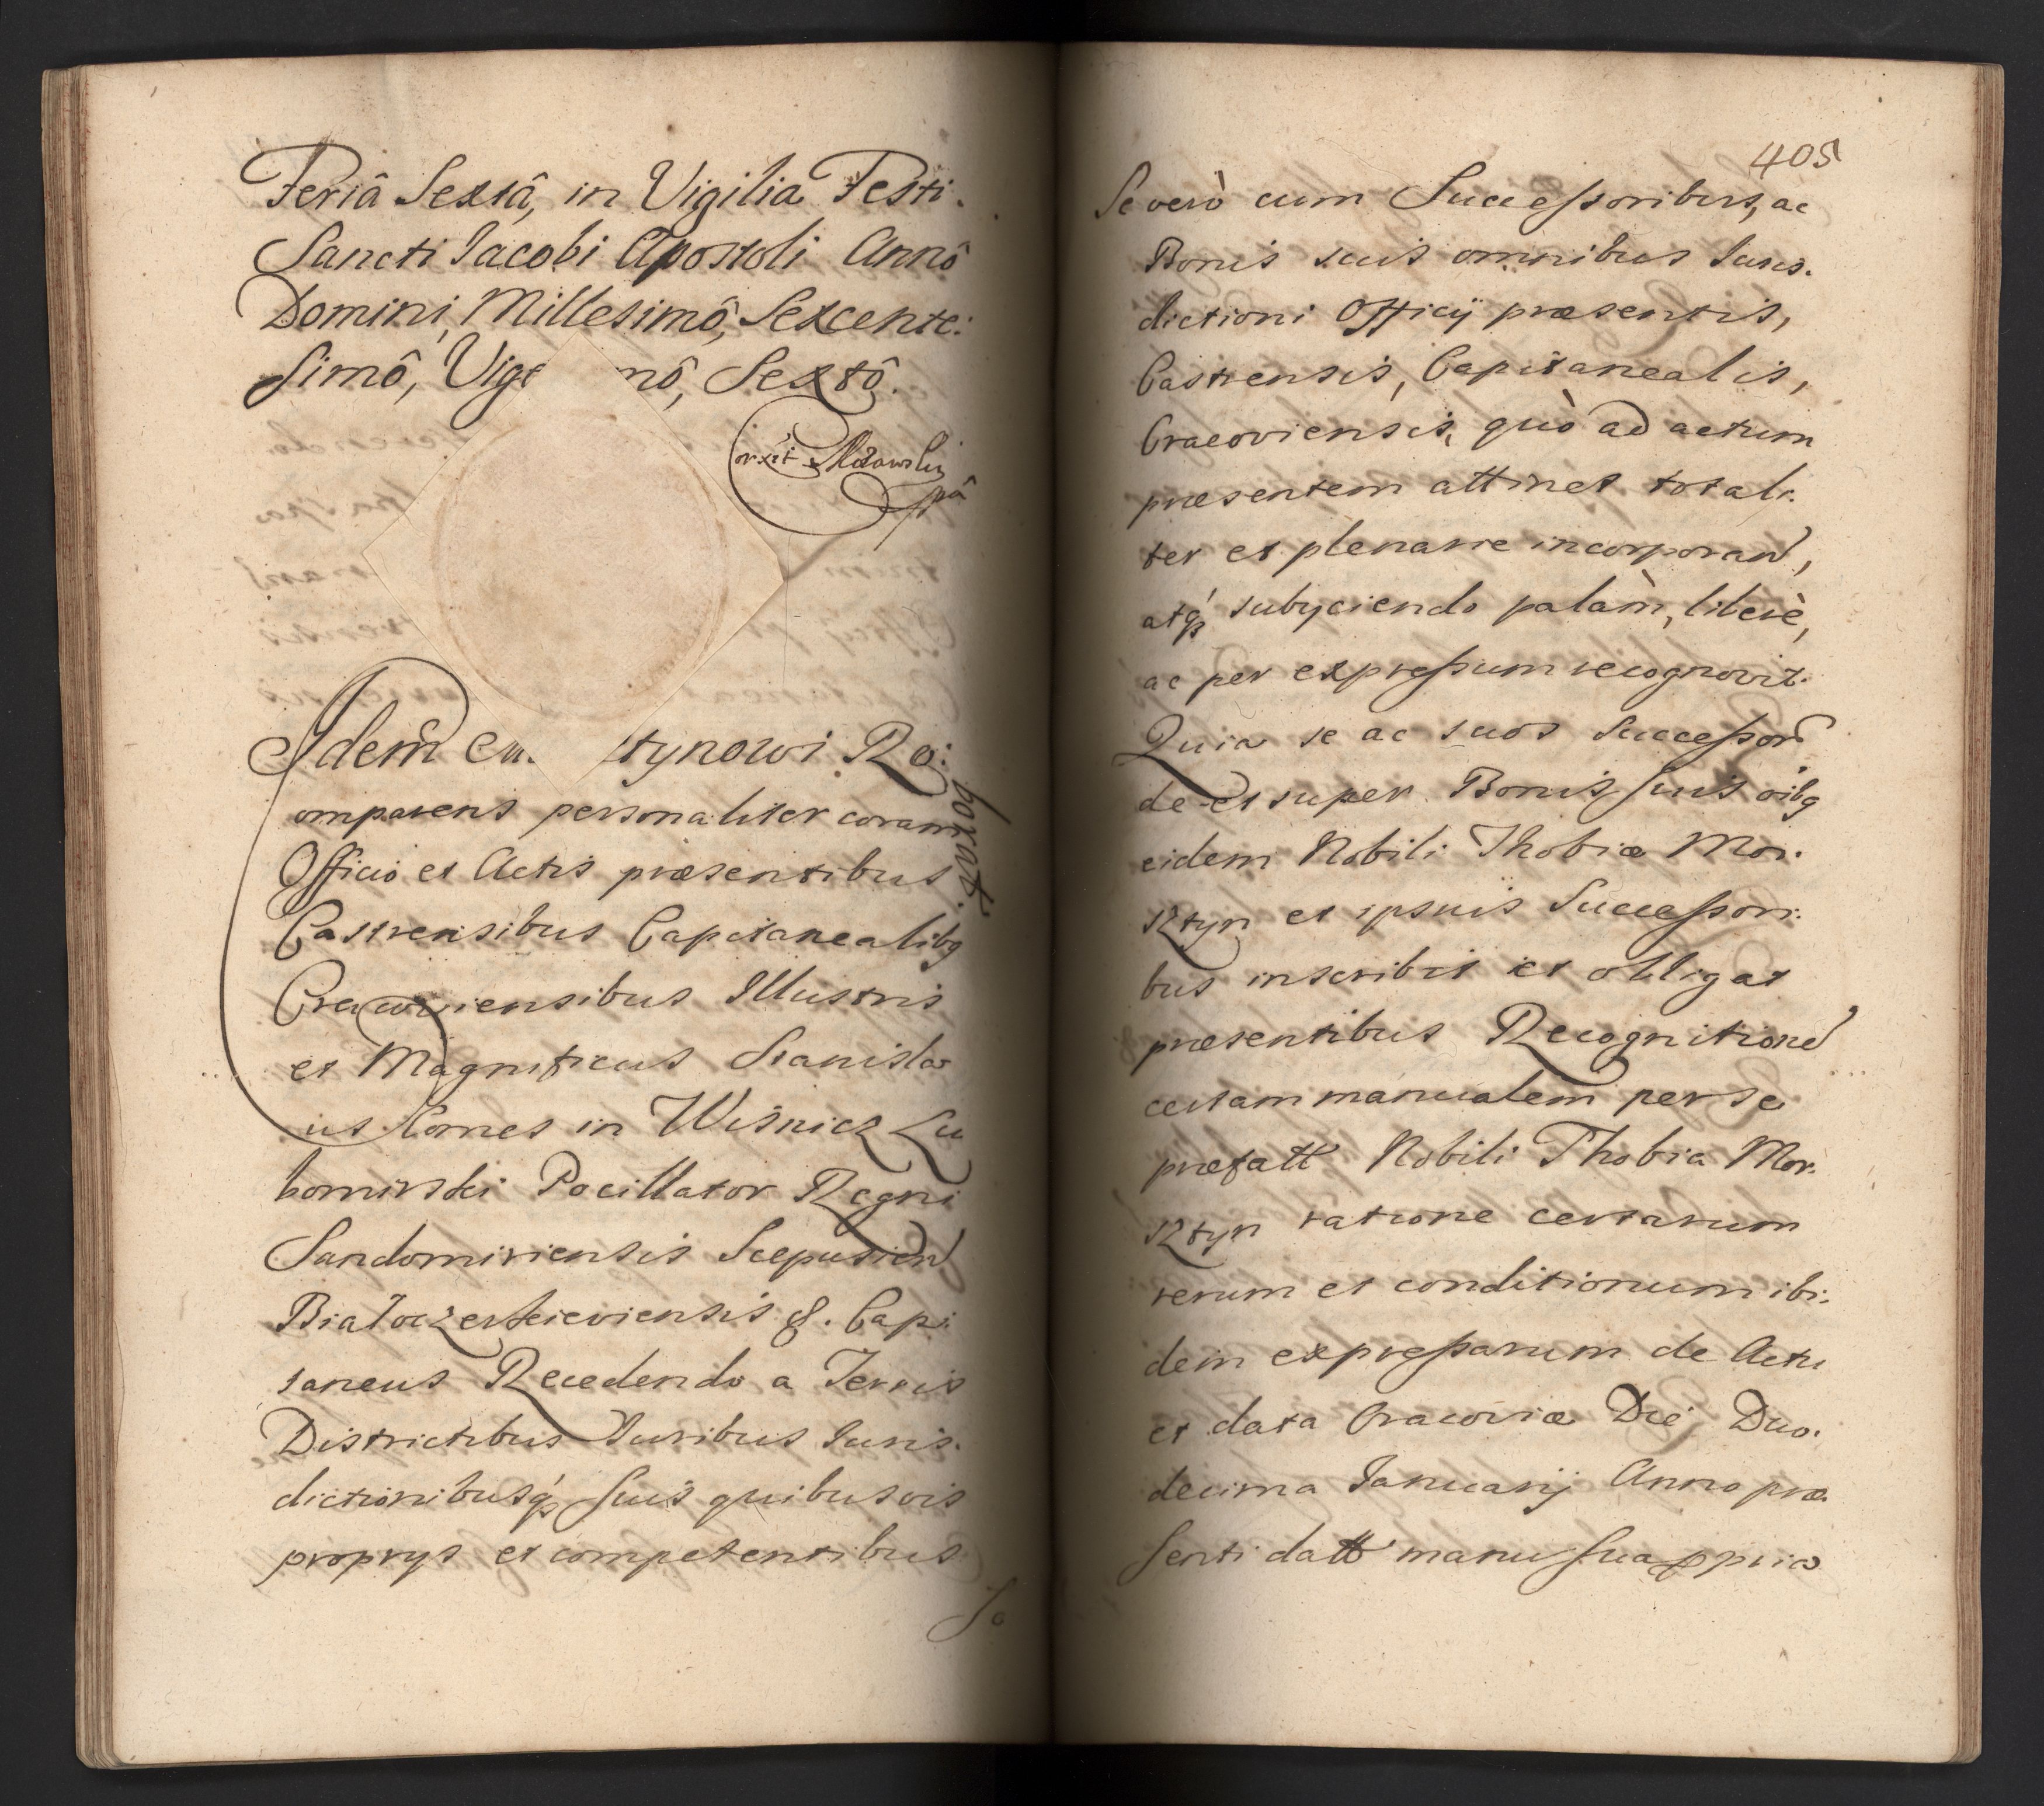 Feriâ Sextâ, in Vigilia Festi
Sancti Jacobi Apostoli Annô
Domini, Millesimô, Sexcente:
simô, Vige mô, Sextô.
Idem tynowi Ro:
borat.
omparens personaliter coram
Officio et Actis præsentibus
Castrensibus Capitanealibq
Cracoviensibus Illustris
et Magnificus Stanisla
us Comes in Wisnicz Lu
bomirski Pocillator Regni
Sandomiriensis Scepusien
Białoczerkieviensis &. Capi
taneus Recedendo a Terris
Districtibus Juribus Juris.
dictionibusq suis quibusvis
proprys et competentibus
Se
405
Se verò cum Successoribus, ac
Bonis suis omnibus Juris.
dictioni Officij præsentis,
Castrensis, Capitanealis,
Cracoviensis, quò ad actum
præsentem attinet totali.
ter et plenarie incorporand,
atq subyciendo palàm, liberè,
ac per expressum recognovit.
Quia se ac suos Successor
de et super Bonis suis oibq
eidem Nobili Thobiæ Mor.
sztyn et ipsius Successori.
bus inscribit et obligat
præsentibus Recognitione
certam manualem per se
præfatt Nobili Thobia Mor.
sztyn ratione certarum
rerum et conditionum ibi.
dem expressarum de Actu
et data Cracoviæ Die Duo.
decima Januarij Anno præ
senti datt manu sua ppria